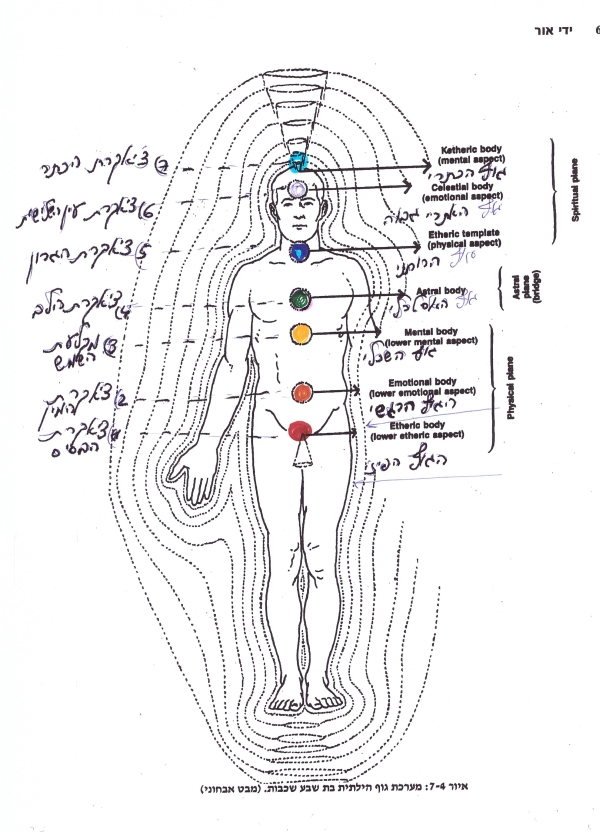 ידי אור
6
Ketheric body
(mental aspect)
גוף הכתרי
Celestial body
(emotional aspect)
Etheric template
(physical aspect)
Astral body
Mental body
(lower mental aspect)
גוף השכלי
Emotional body
(lower emotional aspect)
הגוף הרגשי
Etheric body
(lower etheric aspect)
הגוף הפיזי
Spiritual plane
Astral
plane
(bridge)
Physical plane
7 צ'אקרת הכתר
6 צ'אקרת עין השלישית
5 צ'אקרת הגרון
4 צ'אקרת הלב
3 מקלעת
השמש
2 צ'אקרת
המין
1 צ'אקרת
הבסיס
איור 7-4: מערכת גוף הילתית בת שבע שכבות. (מבט אבחוני)